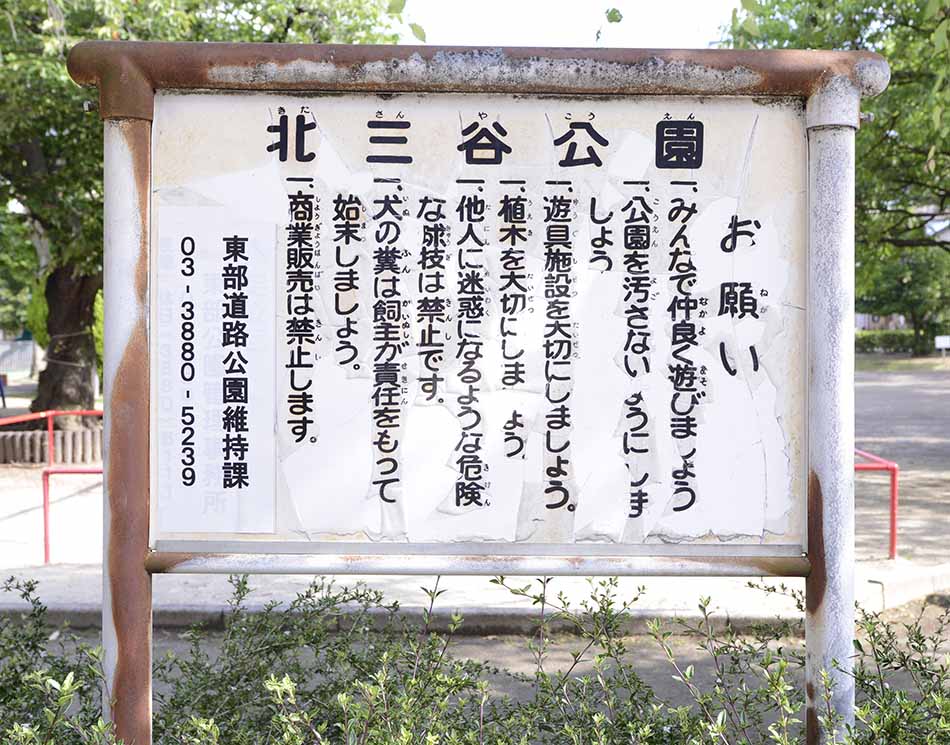 北三谷公園
お願い
一、みんなで仲良く遊びましょう
一、公園を汚さないようにしま
しょう
一、遊具施設を大切にしましょう。
一、植木を大切にしま ょう
一、他人に迷惑になるような危険
な球技は禁止です。
一、犬の糞は飼主が責任をもって
始末しましょう。
一、商業販売は禁止します。
東部道路公園維持課
03-3880-5239